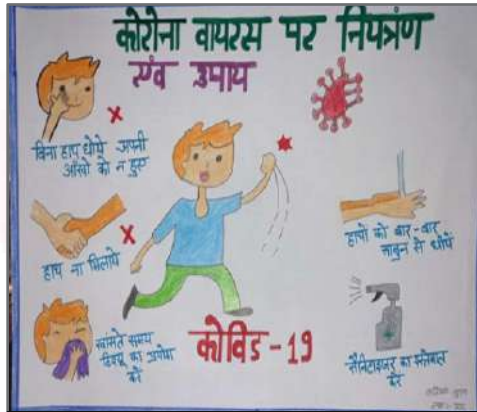 कोरोना वायरस पर नियंत्रण
एंव उपाय
बिना हाथ धोये अपनी
आँखो को न छुए
हाथ ना मिलाये
खांसते समय
टिश्यू का उपयोग
करें
कोविड -19
हाथों को बार-बार
साबुन से धोयें
सैनिटाइजर का इस्तेमाल
करें